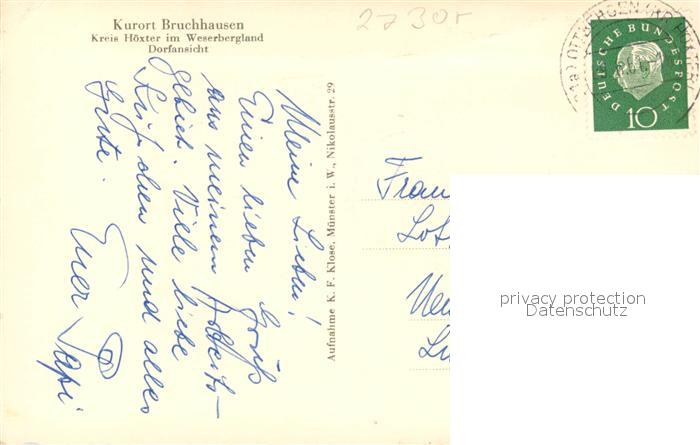 Kurort Bruchhausen
Kreis Höxter im Weserbergland
Dorfansicht
2730r
DEUTSCHE BUNDESPOST
10
Meine Lieben!
Einen lieben Gruß
aus meinem Arbeits-
gebiet. Viele liebe
Küßchen und alles
Gute.
Euer Papi
Aufnahme K. F. Klose, Münster i. W., Nikolausstr. 29
Frau
privacy protection
Datenschutz